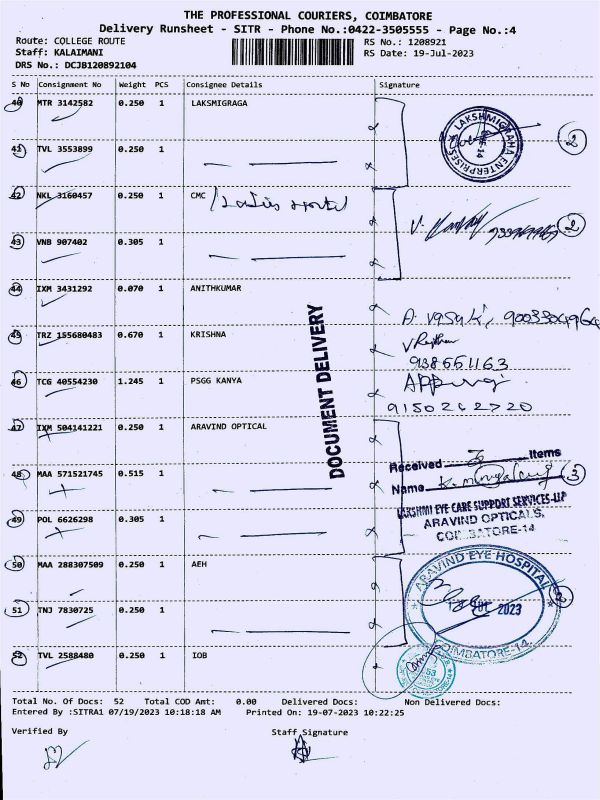 THE PROFESSIONAL COURIERS, COIMBATORE
Delivery Runsheet - SITR - Phone No.:0422-3505555 - Page No.:4
Route: COLLEGE ROUTE RS No.: 1208921
Staff: KALAIMANI RS Date: 19-Jul-2023
DRS No.: DCJB120892104
S No Consignment No Weight PCS Consignee Details Signature
40 MTR 3142582 0.250 1 LAKSMIGRAGA
LAKSHMIGRAHA ENTERPRISES
2
41 TVL 3553899 0.250 1
42 NKL 3160457 0.250 1 CMC / Ladies Hostel
2
43 VNB 907402 0.305 1
44 IXM 3431292 0.070 1 ANITHKUMAR
A. Vasuki, 9003304964
45 TRZ 155680483 0.670 1 KRISHNA
9138651163
46 TCG 40554230 1.245 1 PSGG KANYA
9150262720
47 IXM 504141221 0.250 1 ARAVIND OPTICAL
DOCUMENT DELIVERY
Received Items
48 MAA 571521745 0.515 1
Name 3
LAKSHMI EYE CARE SUPPORT SERVICES-LLP
49 POL 6626298 0.305 1
ARAVIND OPTICALS,
COIMBATORE-14
50 MAA 288307509 0.250 1 AEH
ARAVIND EYE HOSPITAL
JUL 2023
2
51 TNJ 7830725 0.250 1
COIMBATORE-14.
52 TVL 2588480 0.250 1 IOB
Total No. Of Docs: 52 Total COD Amt: 0.00 Delivered Docs: Non Delivered Docs:
Entered By :SITRA1 07/19/2023 10:18:18 AM Printed On: 19-07-2023 10:22:25
Verified By Staff Signature